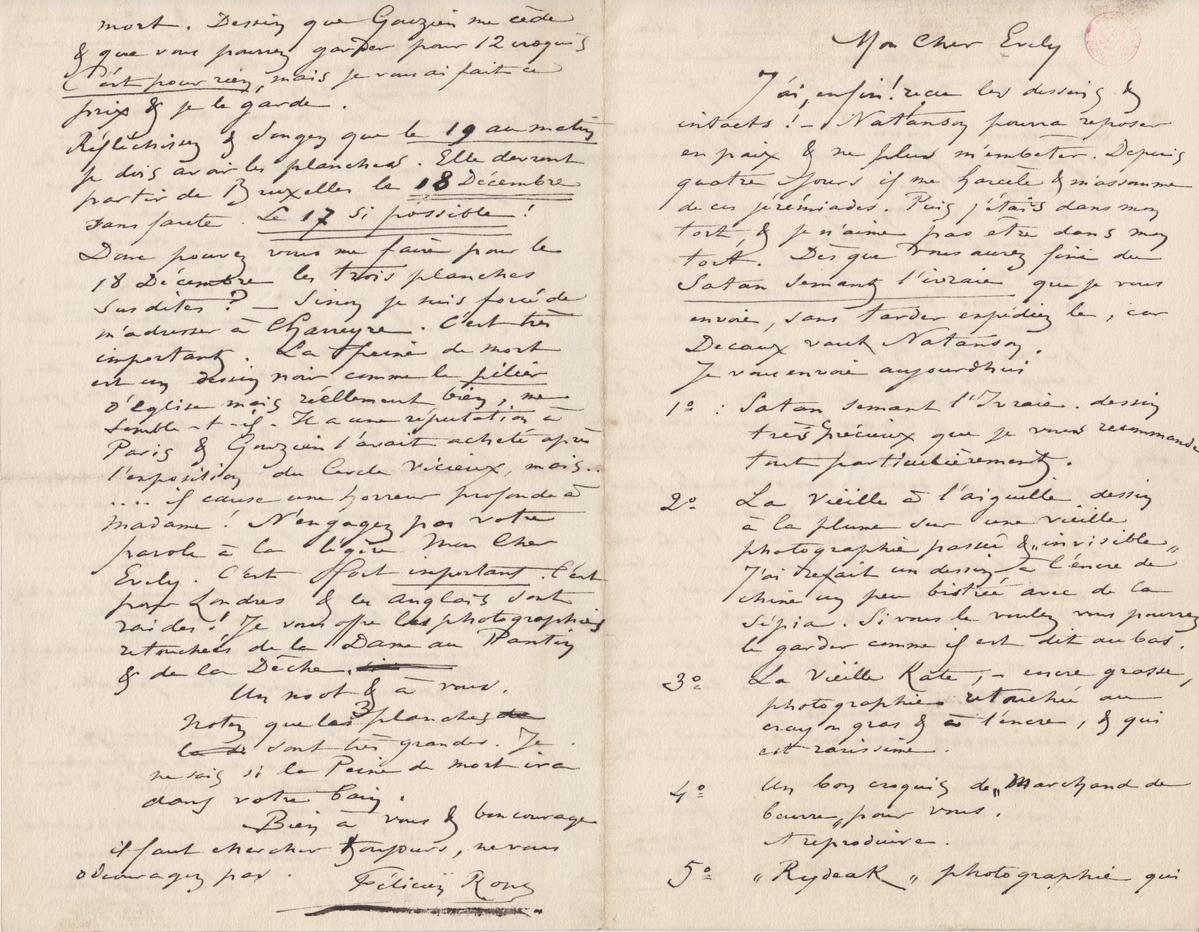 Mon Cher Evely
J'ai, enfin! recu les dessins &
intacts! – Natanson pourra reposer
en paix & ne plus m'embeter. Depuis
quatre jours il me harcele & m'assomme
de ces jérémiades. Puis j'étais dans mon
tort, & je n'aime pas être dans mon
tort. Dès que vous aurez fini du
Satan semant l'ivraie que je vous
envoie, sans tarder expédiez le, car
Decaux vaut Natanson.
Je vous envoie aujourdhui
1º : Satan semant l'Ivraie. dessin
très précieux que je vous recommande
tout particulièrement.
2º La Vieille à l'aiguille dessin
à la plume sur une vieille
photographie passée & „invisible„
J'ai refait un dessin à l'encre de
chine un peu bistrée avec de la
Sépia. Si vous le voulez vous pourrez
le garder comme il est dit au bas.
3º La Vieille Kate, – encre grasse,
photographie retouchée au
crayon gras & à l'encre, & qui
est rarissime.
4º Un bon croquis de „Marchand de
beurre„ pour vous.
A reproduire.
5º „Rydeak„ photographie qui
mort. Dessin que Gouzien me cède
& que vous pourrez garder pour 12 croquis
C'est pour rien, mais je vous ai fait ce
prix & je le garde.
Réfléchissez & Songez que le 19 au matin
je dois avoir les planches. Elle devront
partir de Bruxelles le 18 Décembre
sans faute. Le 17 si possible!
Donc pouvez vous me faire pour le
18 Décembre les trois planches
susdites? – Sinon je suis forcé de
m'adresser à Charreyre. C'est très
important. La Peine de mort
est un dessin noir comme le pilier
d'église mais réellement bien, me
semble-t-il. Il a une réputation à
Paris & Gouzien l'avait acheté après
l'exposition du Cercle vicieux, mais..
.... il cause une horreur profonde à
madame! N'engagez pas votre
parole à la légère Mon Cher
Evely. C'est fort important. C'est
pour Londres & les anglais sont
raides! Je vous offre les photographies
retouchées de la Dame au Pantin
& de la Dèche.
Un mot & à vous.
Notez que les 3 planches
sont très grandes. Je
ne sais si la Peine de mort ira
dans votre bain.
Bien à vous & bon courage
il faut chercher toujours, ne vous
découragez pas.
Félicien Rops